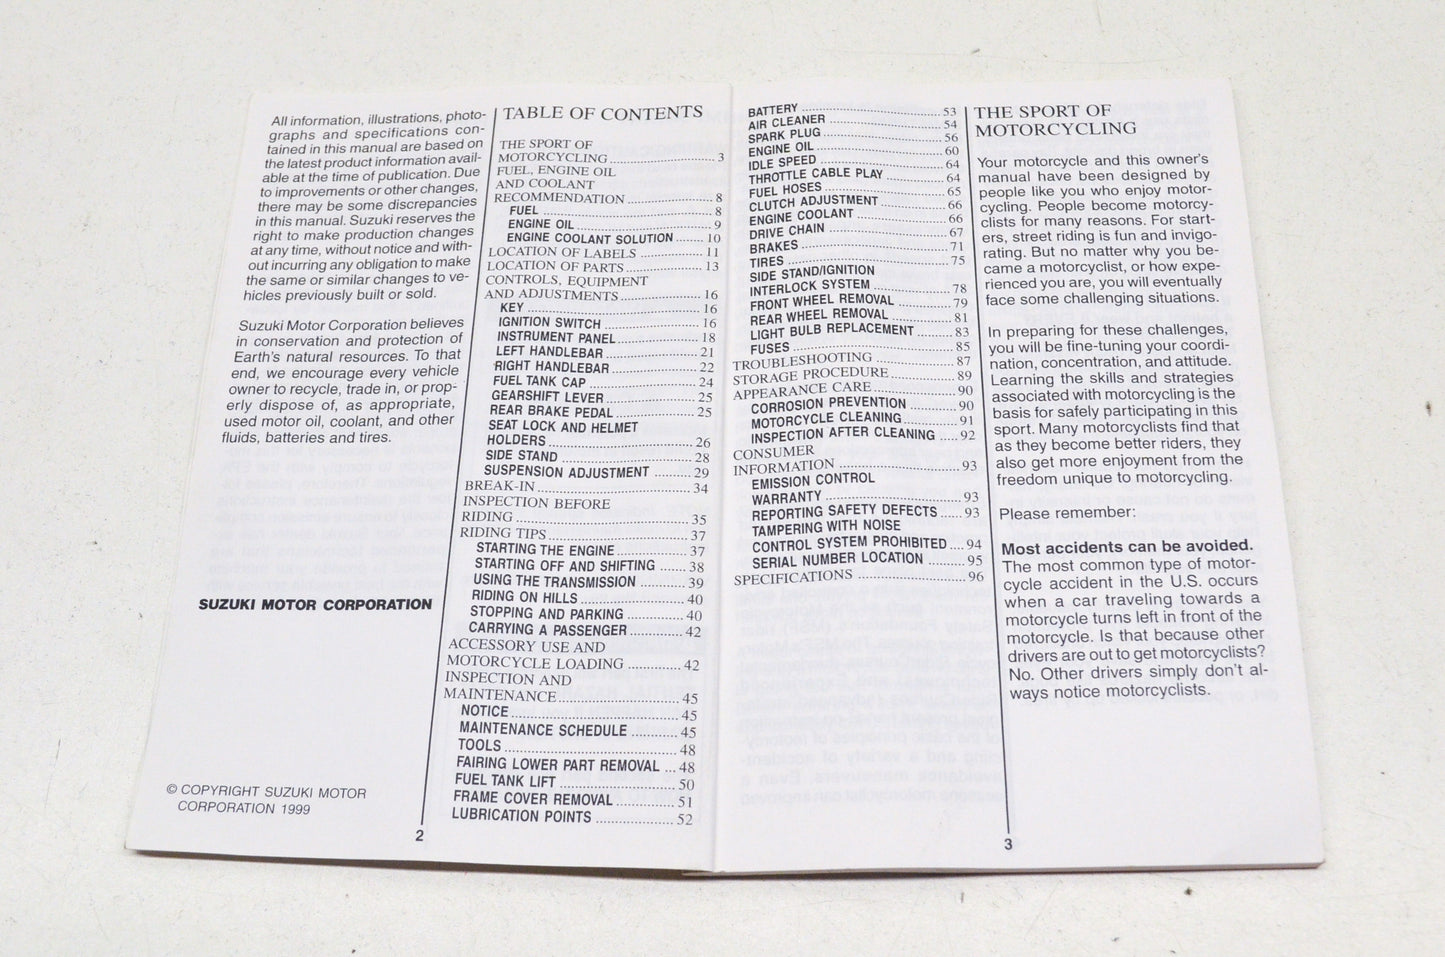 All information, illustrations, photo-
graphs and specifications con-
tained in this manual are based on
the latest product information avail-
able at the time of publication. Due
to improvements or other changes,
there may be some discrepancies
in this manual. Suzuki reserves the
right to make production changes
at any time, without notice and with-
out incurring any obligation to make
the same or similar changes to ve-
hicles previously built or sold.
Suzuki Motor Corporation believes
in conservation and protection of
Earth's natural resources. To that
end, we encourage every vehicle
owner to recycle, trade in, or prop-
erly dispose of, as appropriate,
used motor oil, coolant, and other
fluids, batteries and tires.
SUZUKI MOTOR CORPORATION
© COPYRIGHT SUZUKI MOTOR
CORPORATION 1999
TABLE OF CONTENTS
THE SPORT OF
MOTORCYCLING ... 3
FUEL, ENGINE OIL
AND COOLANT
RECOMMENDATION ... 8
FUEL ... 8
ENGINE OIL ... 9
ENGINE COOLANT SOLUTION ... 10
LOCATION OF LABELS ... 11
LOCATION OF PARTS ... 13
CONTROLS, EQUIPMENT
AND ADJUSTMENTS ... 16
KEY ... 16
IGNITION SWITCH ... 16
INSTRUMENT PANEL ... 18
LEFT HANDLEBAR ... 21
RIGHT HANDLEBAR ... 22
FUEL TANK CAP ... 24
GEARSHIFT LEVER ... 25
REAR BRAKE PEDAL ... 25
SEAT LOCK AND HELMET
HOLDERS ... 26
SIDE STAND ... 28
SUSPENSION ADJUSTMENT ... 29
BREAK-IN ... 34
INSPECTION BEFORE
RIDING ... 35
RIDING TIPS ... 37
STARTING THE ENGINE ... 37
STARTING OFF AND SHIFTING ... 38
USING THE TRANSMISSION ... 39
RIDING ON HILLS ... 40
STOPPING AND PARKING ... 40
CARRYING A PASSENGER ... 42
ACCESSORY USE AND
MOTORCYCLE LOADING ... 42
INSPECTION AND
MAINTENANCE ... 45
NOTICE ... 45
MAINTENANCE SCHEDULE ... 45
TOOLS ... 48
FAIRING LOWER PART REMOVAL ... 48
FUEL TANK LIFT ... 50
FRAME COVER REMOVAL ... 51
LUBRICATION POINTS ... 52
2
BATTERY ... 53
AIR CLEANER ... 54
SPARK PLUG ... 56
ENGINE OIL ... 60
IDLE SPEED ... 64
THROTTLE CABLE PLAY ... 64
FUEL HOSES ... 65
CLUTCH ADJUSTMENT ... 66
ENGINE COOLANT ... 66
DRIVE CHAIN ... 67
BRAKES ... 71
TIRES ... 75
SIDE STAND/IGNITION
INTERLOCK SYSTEM ... 78
FRONT WHEEL REMOVAL ... 79
REAR WHEEL REMOVAL ... 81
LIGHT BULB REPLACEMENT ... 83
FUSES ... 85
TROUBLESHOOTING ... 87
STORAGE PROCEDURE ... 89
APPEARANCE CARE ... 90
CORROSION PREVENTION ... 90
MOTORCYCLE CLEANING ... 91
INSPECTION AFTER CLEANING ... 92
CONSUMER
INFORMATION ... 93
EMISSION CONTROL
WARRANTY ... 93
REPORTING SAFETY DEFECTS ... 93
TAMPERING WITH NOISE
CONTROL SYSTEM PROHIBITED ... 94
SERIAL NUMBER LOCATION ... 95
SPECIFICATIONS ... 96
THE SPORT OF
MOTORCYCLING
Your motorcycle and this owner's
manual have been designed by
people like you who enjoy motor-
cycling. People become motorcy-
clists for many reasons. For start-
ers, street riding is fun and invigo-
rating. But no matter why you be-
came a motorcyclist, or how expe-
rienced you are, you will eventually
face some challenging situations.
In preparing for these challenges,
you will be fine-tuning your coordi-
nation, concentration, and attitude.
Learning the skills and strategies
associated with motorcycling is the
basis for safely participating in this
sport. Many motorcyclists find that
as they become better riders, they
also get more enjoyment from the
freedom unique to motorcycling.
Please remember:
Most accidents can be avoided.
The most common type of motor-
cycle accident in the U.S. occurs
when a car traveling towards a
motorcycle turns left in front of the
motorcycle. Is that because other
drivers are out to get motorcyclists?
No. Other drivers simply don't al-
ways notice motorcyclists.
3